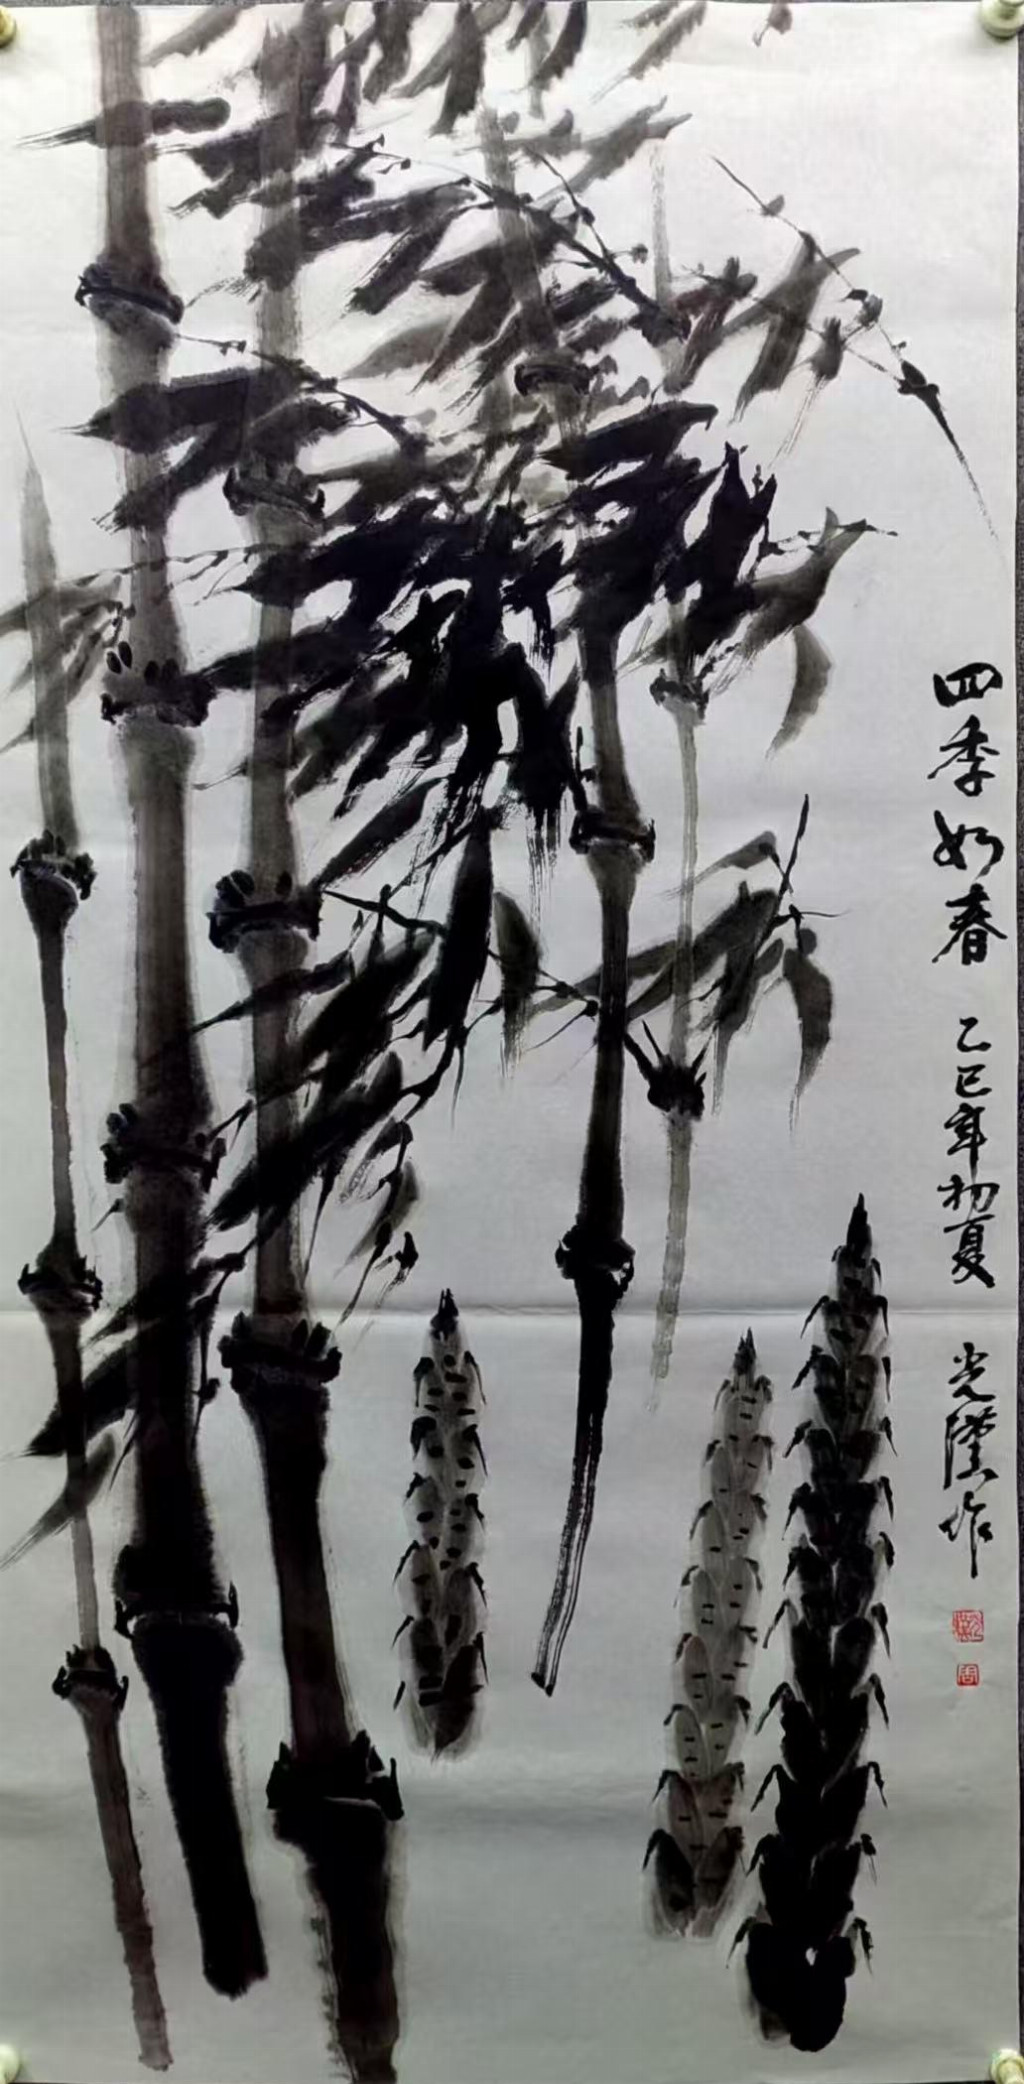 四季如春 乙巳年初夏 光隆作